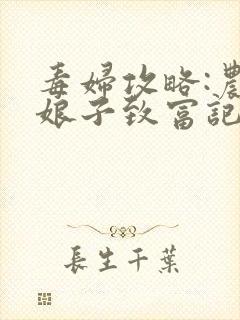 毒婦攻略:農
娘子致富記
長生千葉